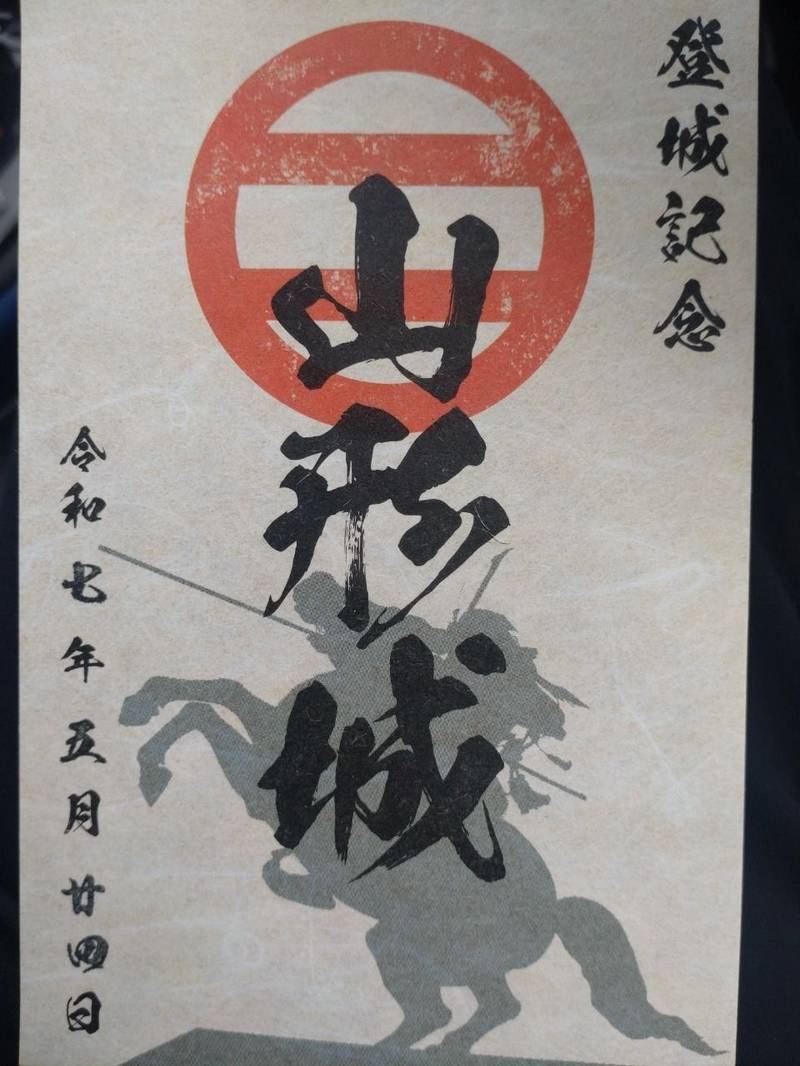 登城記念
山形城
令和七年五月廿四日